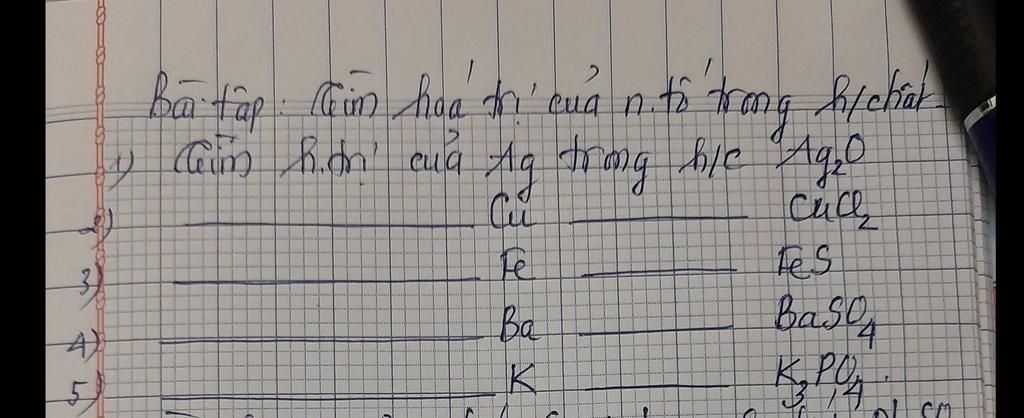 Bài tập. Tìm hoá trị của n.tố trong h/chất
1) Tìm h.trị của Ag trong h/c Ag₂O
2) ——— Cu ——— CuCl₂
3) ——— Fe ——— FeS
4) ——— Ba ——— BaSO₄
5) ——— K ——— K₃PO₄.